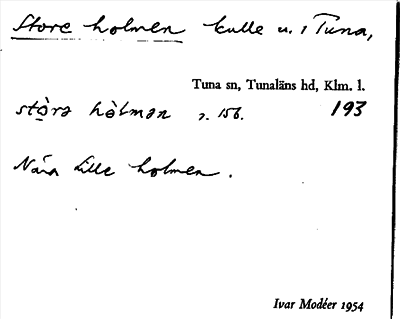 Store holmen kulle u. 1 Tuna,
Tuna sn, Tunaläns hd, Klm. l.
stòrə hòlmən s. 156. 193
Nära Lille holmen.
Ivar Modéer 1954